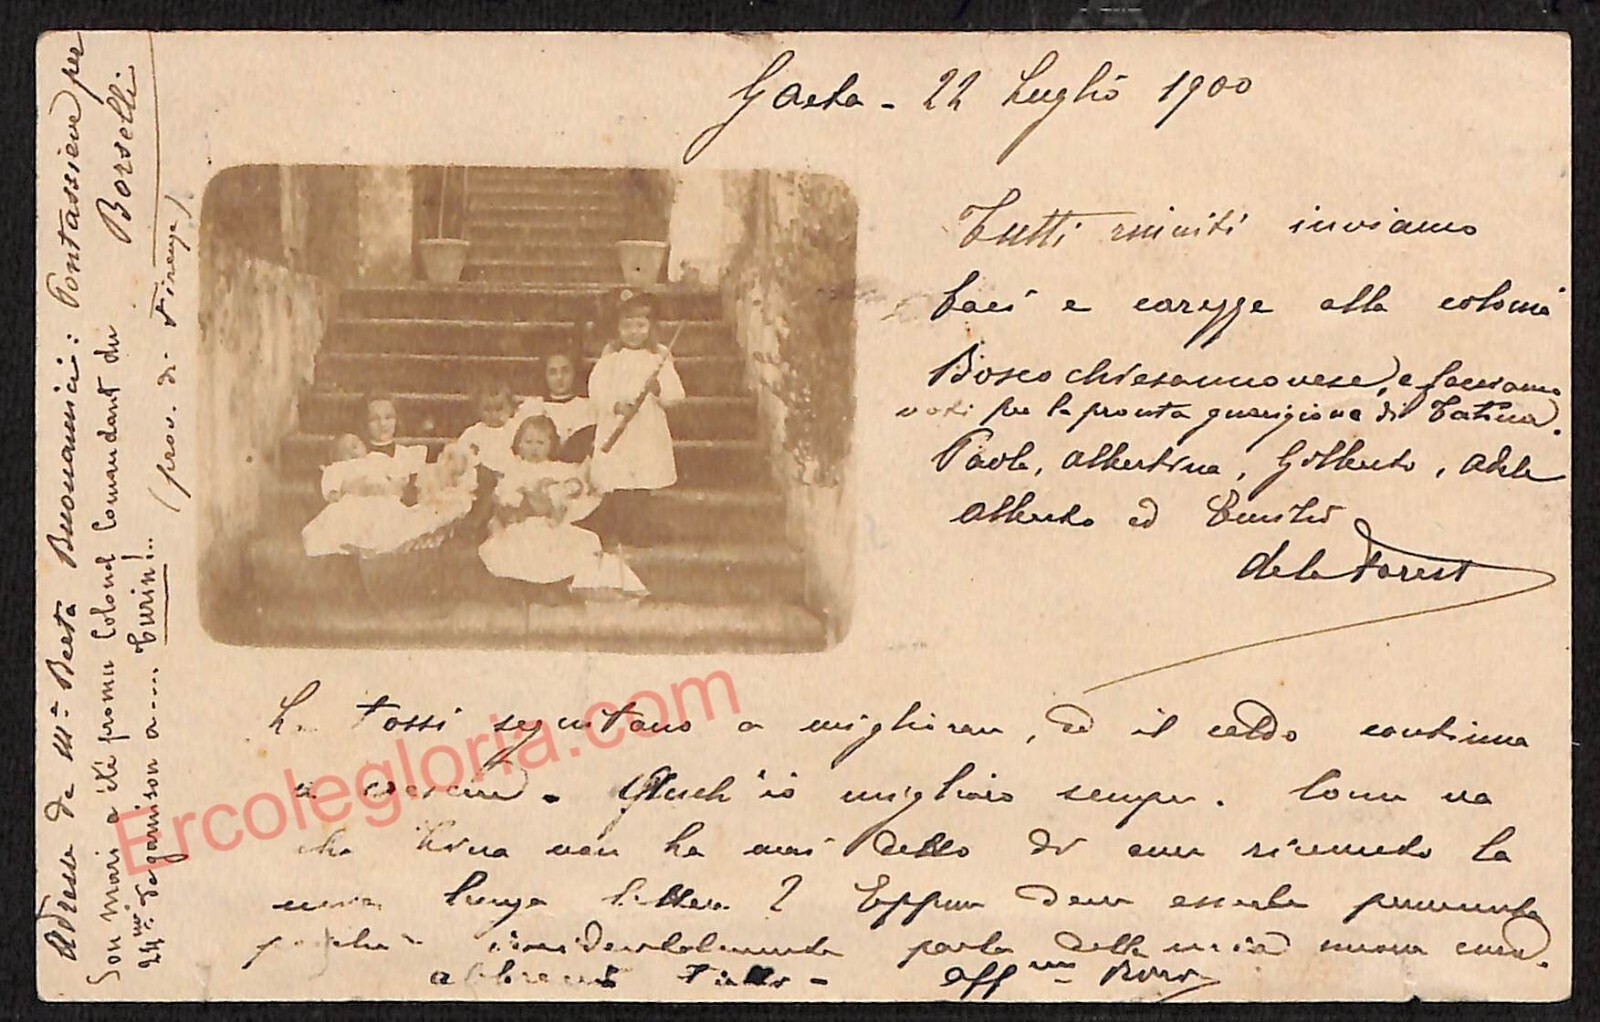 Gaeta - 22 Luglio 1900
Tutti riuniti inviamo
baci e carezze alla colonia
Boscochiesannovese, e facciamo
voti per la pronta guarigione di Tatina.
Paola, Albertina, Gilberto, Adele
Alberto ed Emilio
de la Forest
tossi seguitano a migliorare, ed il caldo continua
a crescere. Anch'io miglioro sempre. Come va
che non ha mai detto di aver ricevuto la
mia lunga lettera? Eppure deve esserle pervenuta
perchè incidentalmente parla della mia nuova cura.
aff.mo
Adresse de M.e Berta Buonamici: Pontassieve per
Borselli
(prov. di Firenze)
Son mari a été promu Colonel Comandant du
24.me de garnison a.... Turin!..
Ercolegloria.com